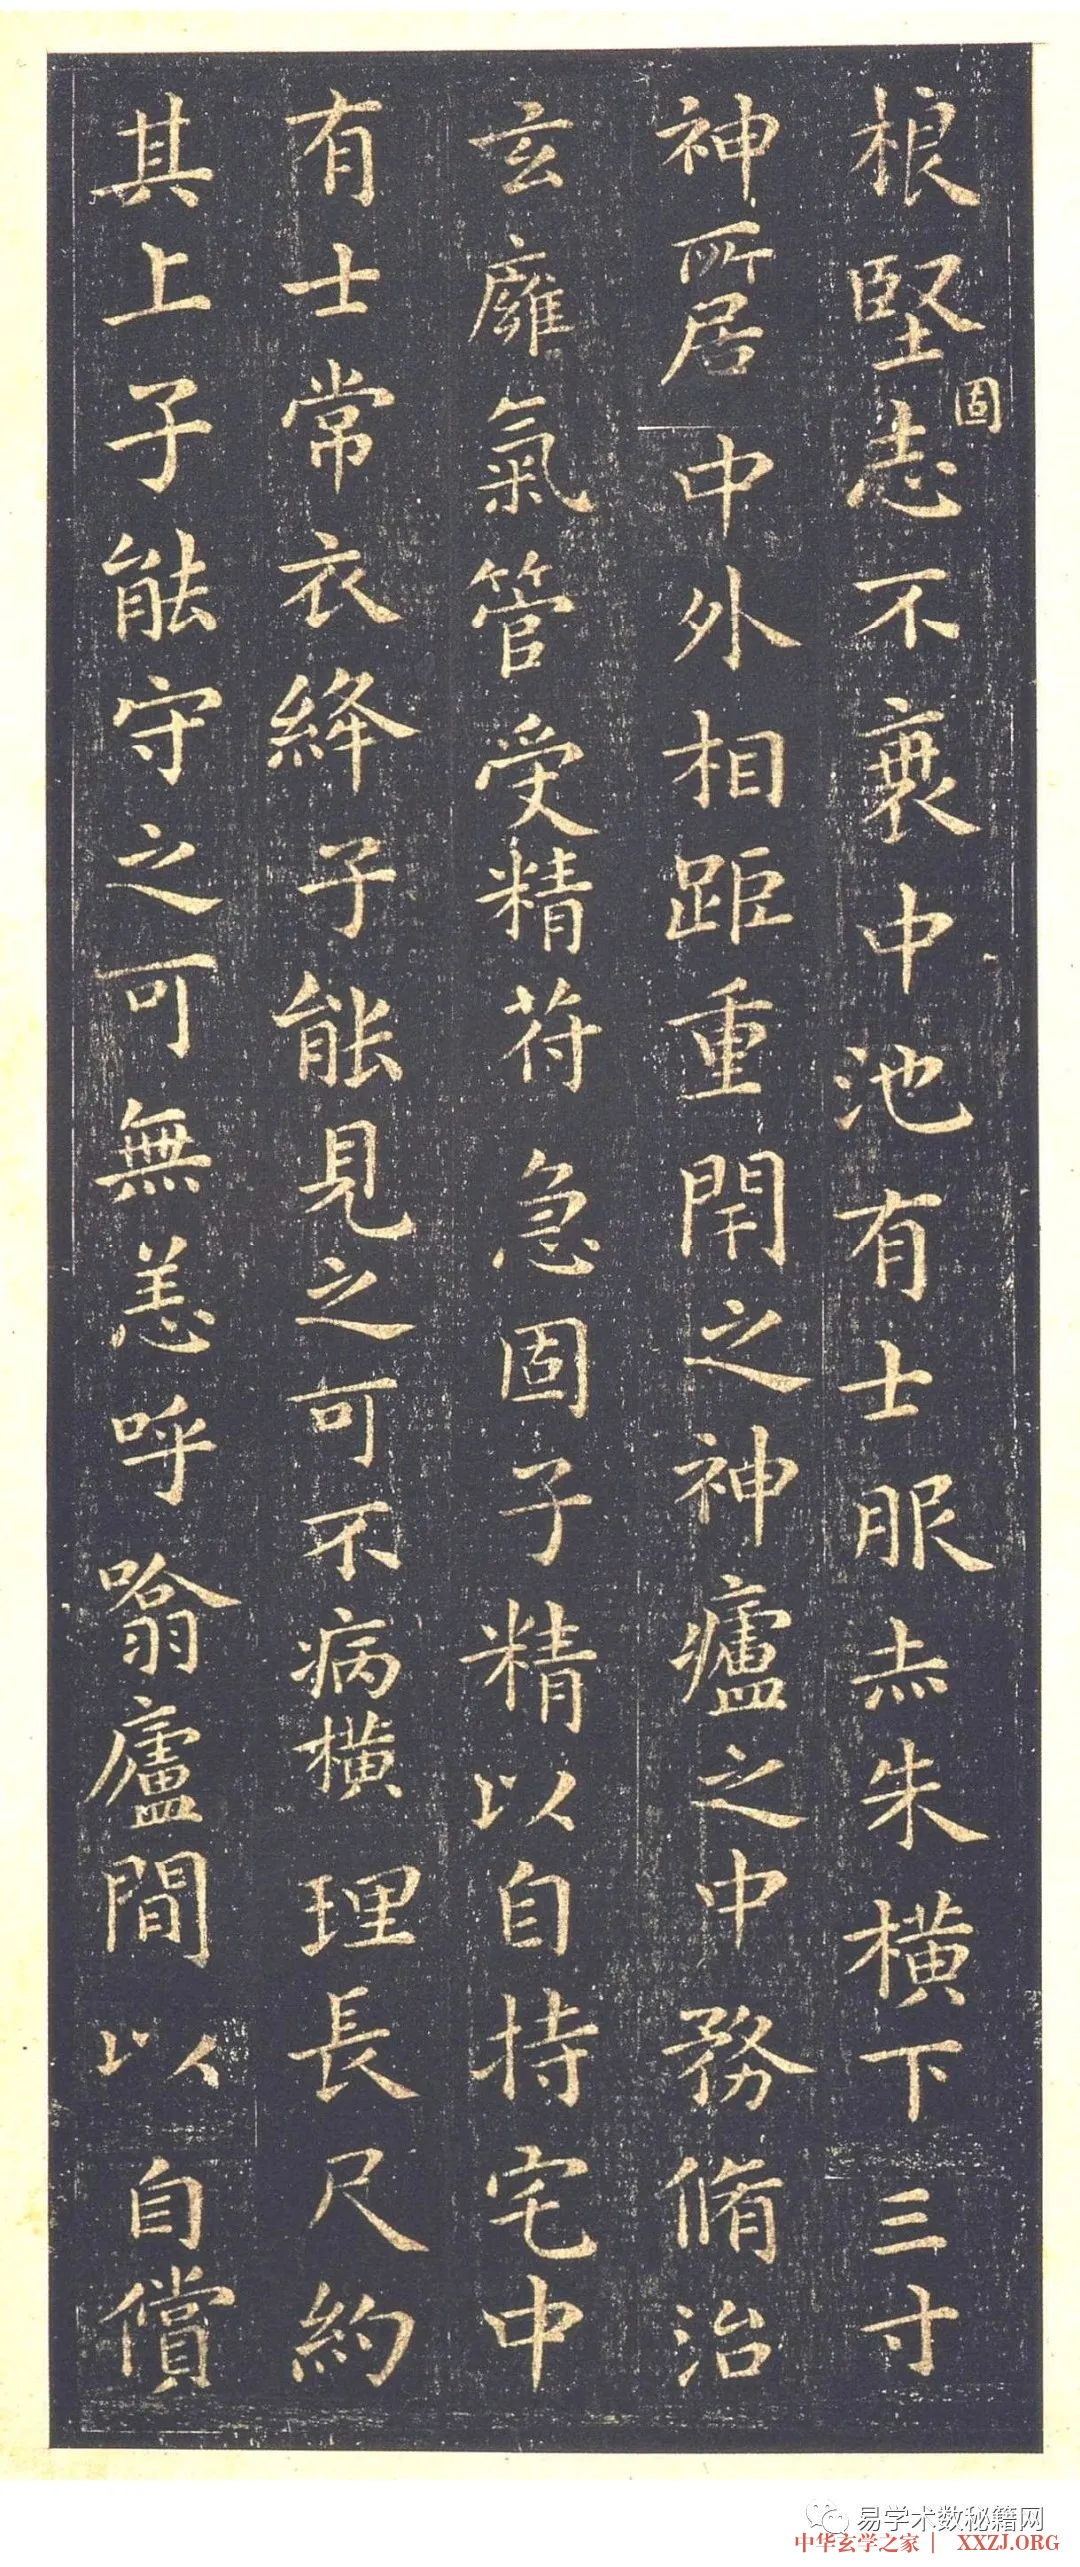 根堅固志不衰中池有士服赤朱横下三寸
神所居中外相距重閇之神廬之中務脩治
玄廱氣管受精苻急固子精以自持宅中
有士常衣絳子能見之可不病横理長尺約
其上子能守之可無恙呼噏廬間以自償
易学术数秘籍网
中华玄学之家| XXZJ.ORG